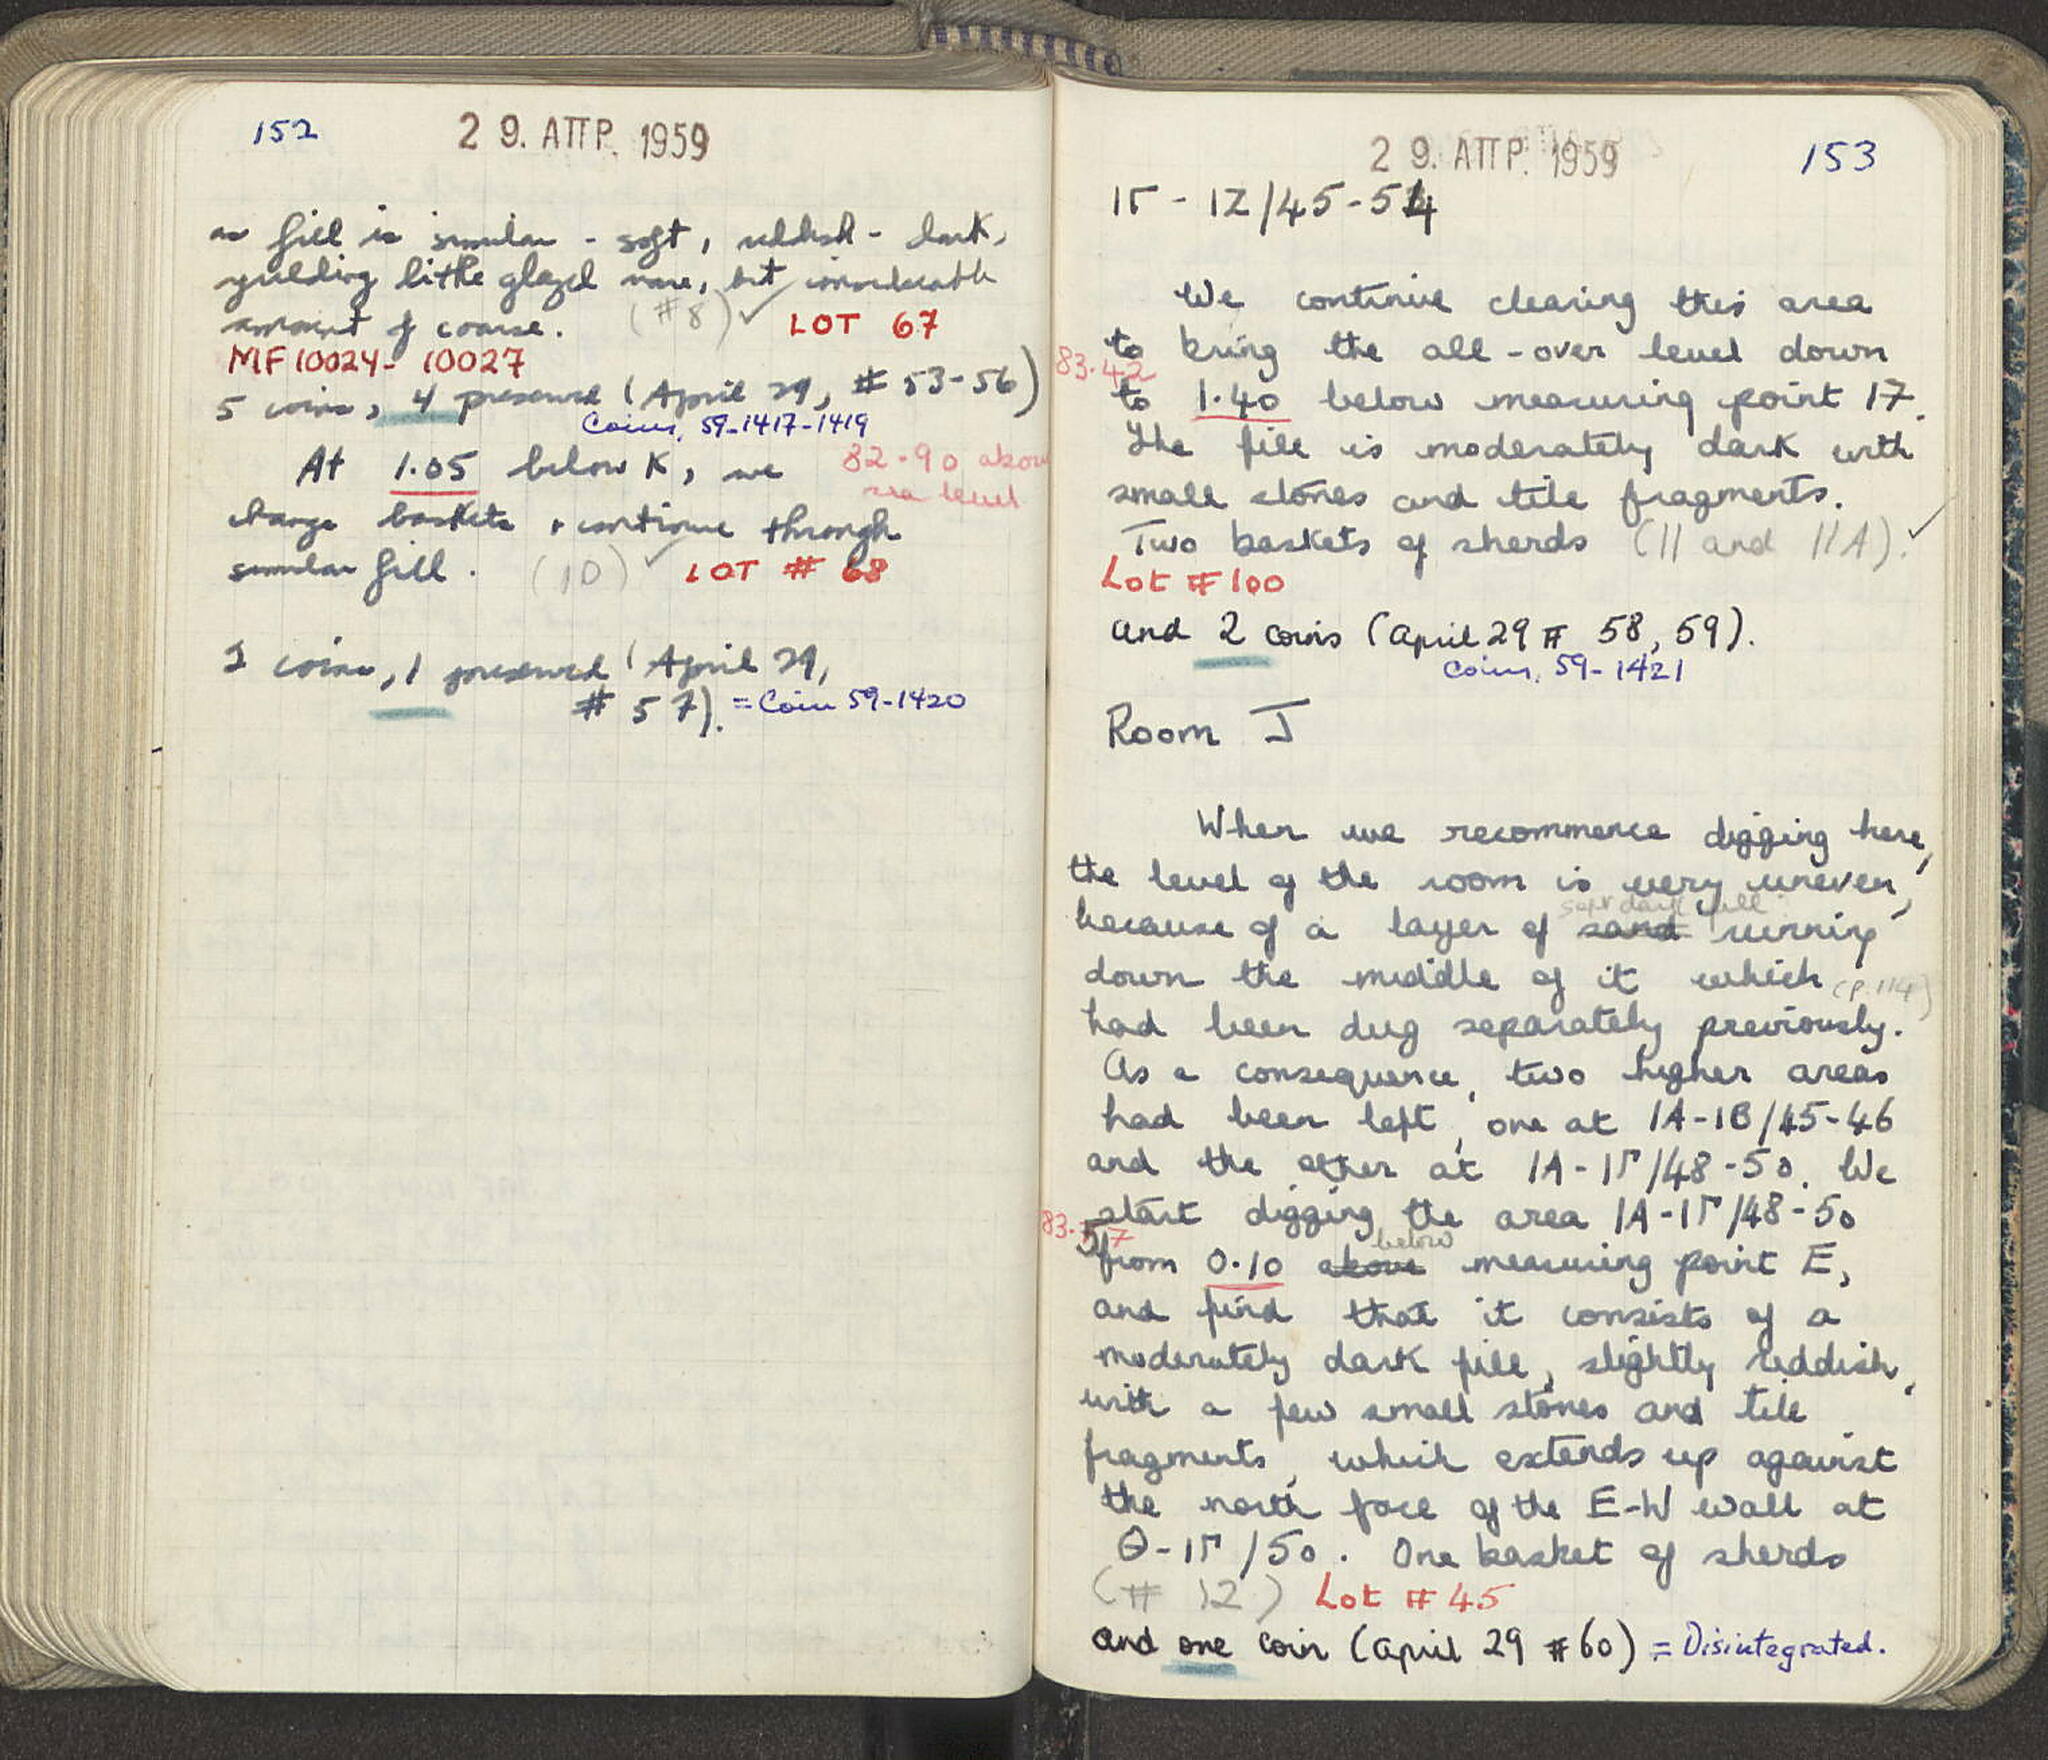 152
29. ΑΠΡ. 1959
as fill is similar - soft, reddish - dark,
yielding little glazed ware, but considerable
amount of coarse. (#8) ✓ LOT 67
MF 10024- 10027
5 coins, 4 preserved (April 29, # 53-56)
Coins, 59-1417-1419
At 1.05 below K, we 82-90 above
sea level
change baskets + continue through
similar fill. (10) ✓ LOT # 68
2 coins, 1 preserved (April 29,
# 57). = Coin 59-1420
29. ΑΠΡ. 1959
153
1Γ - 1Z/45-54
We continue clearing this area
to bring the all-over level down
83.42
to 1.40 below measuring point 17.
The fill is moderately dark with
small stones and tile fragments.
Two baskets of sherds (11 and 11A). ✓
Lot # 100
and 2 coins (April 29 # 58, 59).
Coins, 59-1421
Room J
When we recommence digging here,
the level of the room is very uneven,
soft dark fill
because of a layer of sand running
down the middle of it which (p. 114)
had been dug separately previously.
As a consequence, two higher areas
had been left, one at 1A-1B/45-46
and the other at 1A-1Γ/48-50. We
start digging the area 1A-1Γ/48-50
83.57
below
from 0.10 above measuring point E,
and find that it consists of a
moderately dark fill, slightly reddish,
with a few small stones and tile
fragments, which extends up against
the north face of the E-W wall at
Θ-1Γ/50. One basket of sherds
(# 12) Lot # 45
and one coin (April 29 #60) = Disintegrated.